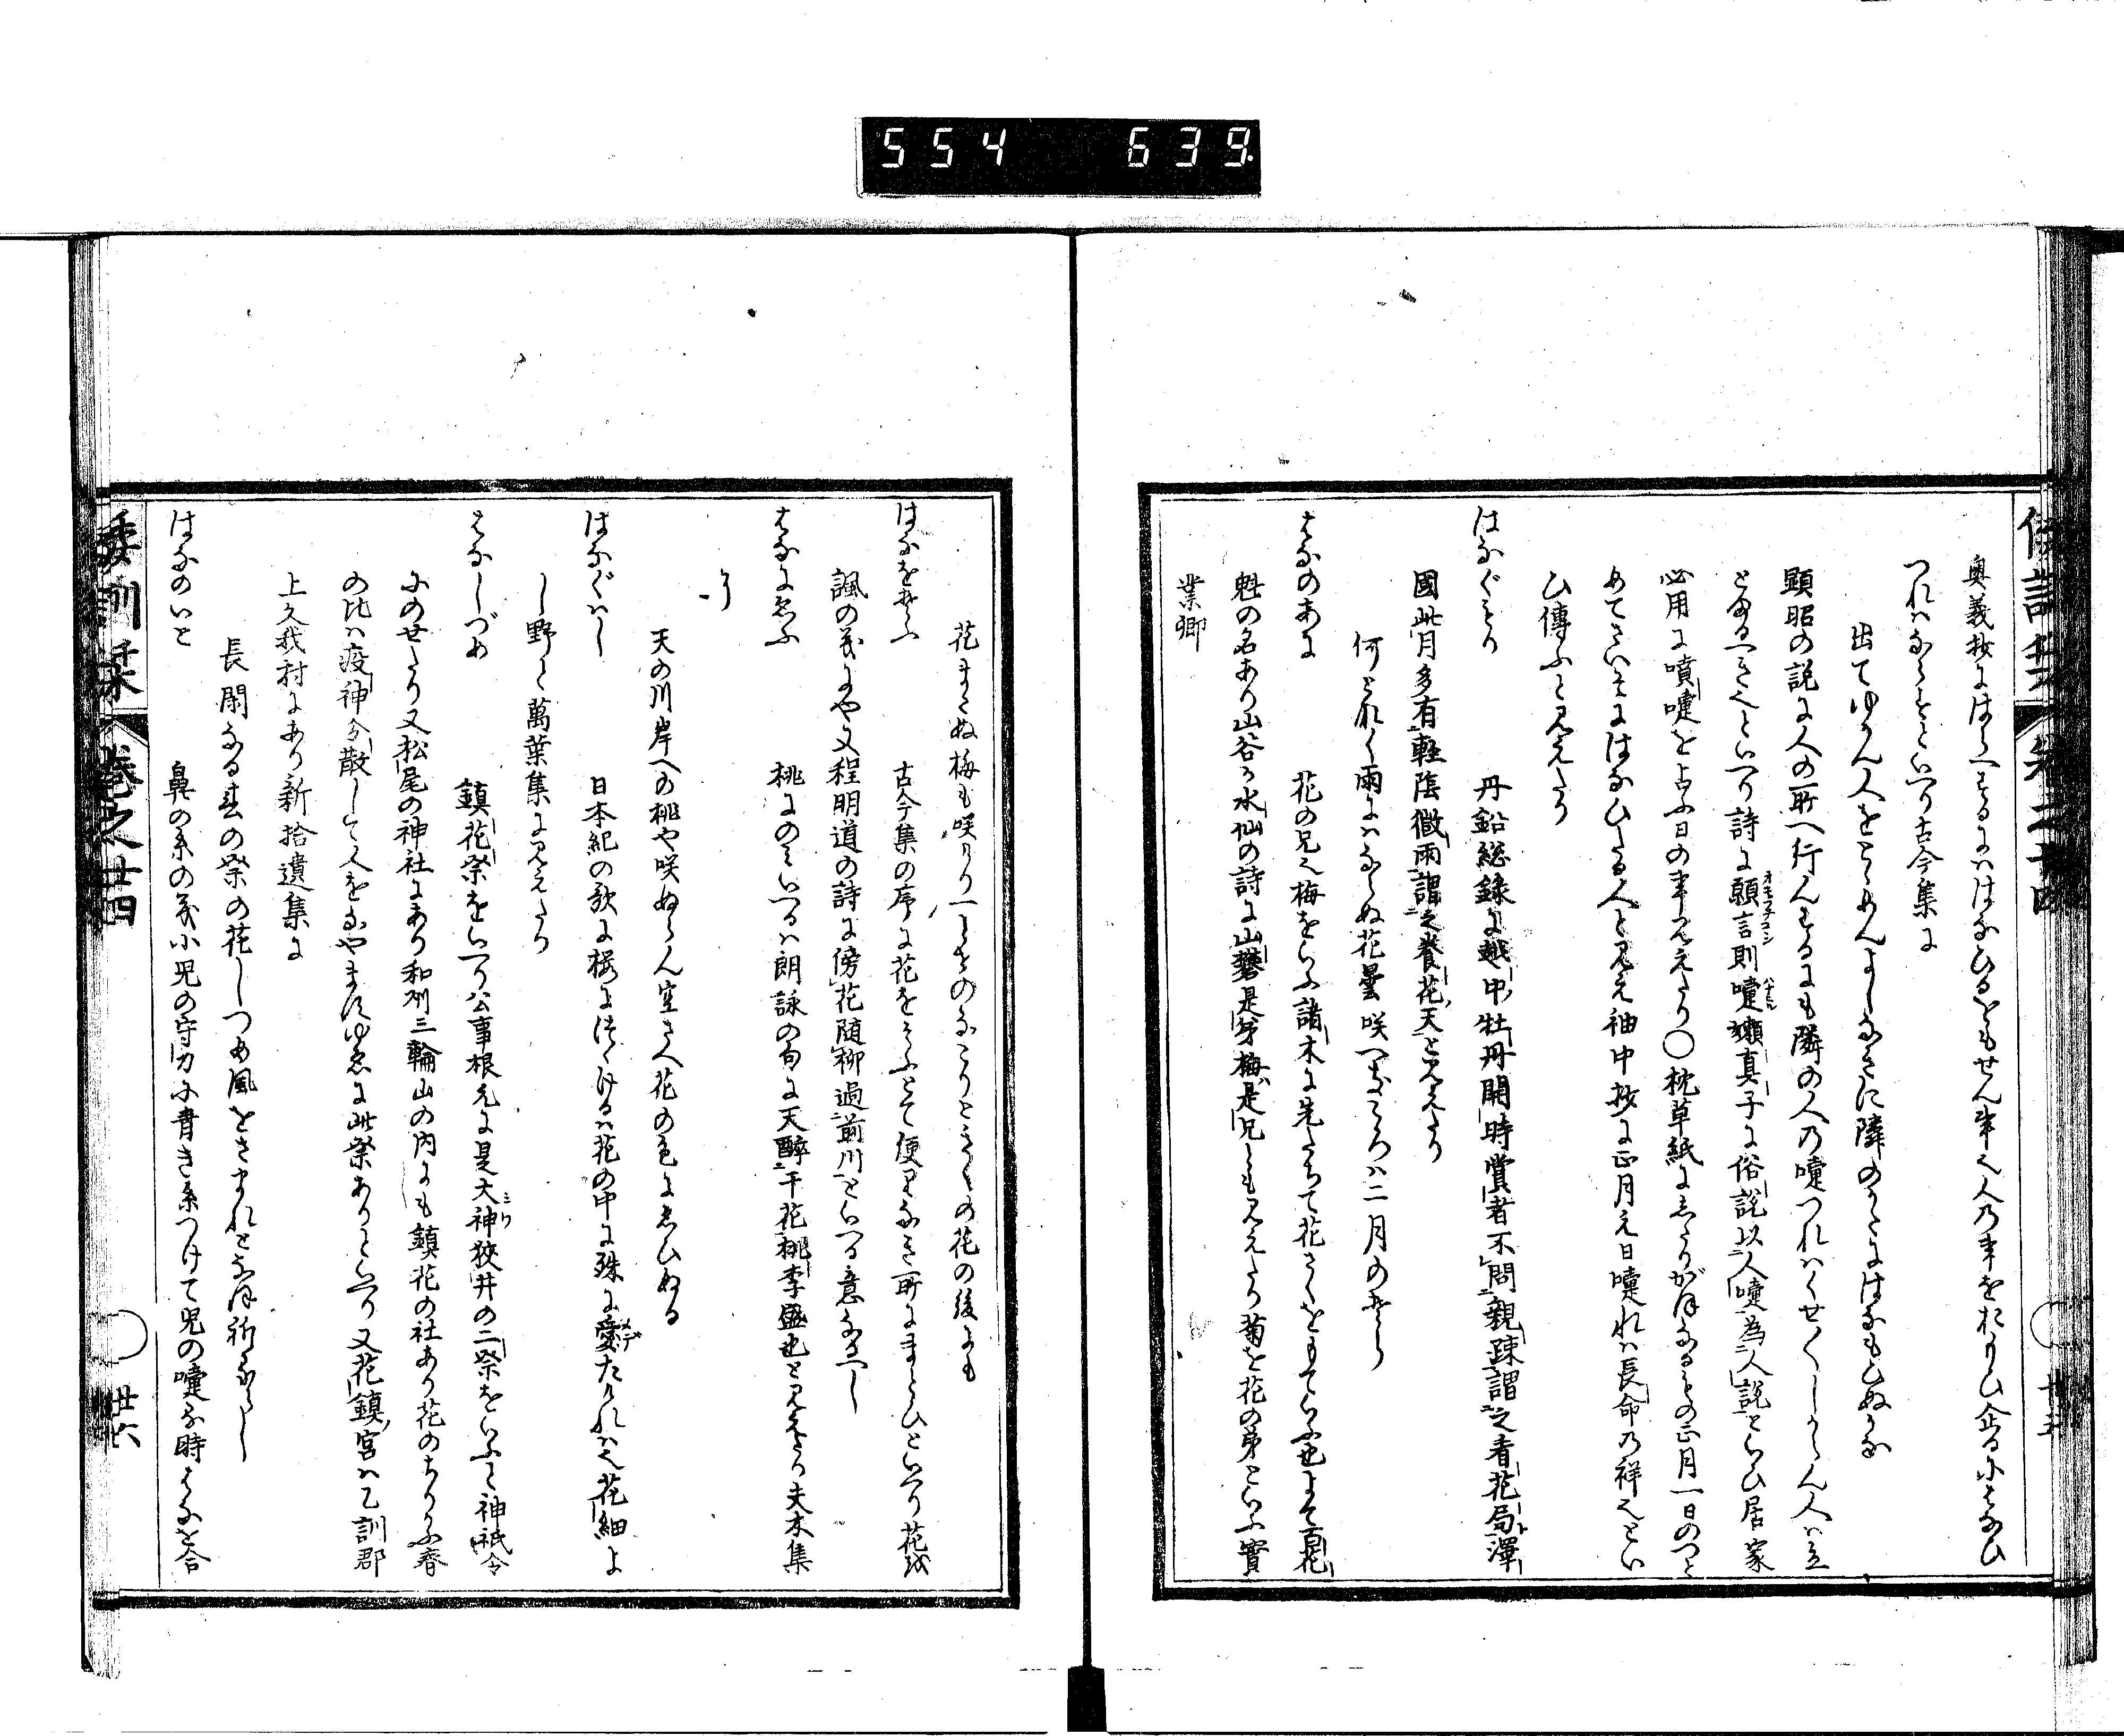 554 639
奥義抄にはらへするにははなひるをもせん事也人の事をおもひ企るにはなひ
つれはならすといへり古今集に
出てゆかん人をとゝめんよしなきに隣のかたにはなもひぬかな
顕昭の説に人の所へ行んするにも隣の人の嚏つれはくせくしからん人は立
とまるへき也といへり詩に願言則嚏嬾真子に俗説以人嚏為人説といひ居家
必用に噴嚏を占ふ日の事見えたり〇枕草紙にしたりがほなるもの正月一日のつと
めてさいそにはなひたる人と見え袖中抄に正月元日嚏れは長命の祥也とい
ひ傳ふと見えたり
はなぐもり　丹鉛総録に越中牡丹開時賞者不問親疎謂之看花局澤
國此月多有軽陰微雨謂之養花天と見えたり
何となく雨にはならぬ花曇咲へきころは二月のそら
はなのあに　花の兄也梅をいふ諸木に先たちて花さくをもていふ也よて百花
魁の名あり山谷か水仙の詩に山礬是弟梅是兄とも見えたり菊を花の弟といふ實
業卿
花まちぬ梅も咲けり一とせのなこりときくの花の後にも
はなをそふ　古今集の序に花をそふとて便りなき所にまとひといへり花を
諷の義にや又程明道の詩に傍花随柳過前川といへる意なるへし
はなにゑふ　桃にのみいへるは朗詠の句に天酔于花桃李盛也と見えたり夫木集
に
天の川岸への桃や咲ぬらん空さへ花の色にゑひぬる
はなぐはし　日本紀の歌に桜につゝけるは花の中に殊に愛たけれは也花細よ
し野と萬葉集に見えたり
はなしづめ　鎮花祭をいへり公事根元に是大神狭井の二祭をいふと神祇令
にのせたり又松尾の神社にあり和州三輪山の内にも鎮花の社あり花のちりかふ春
の比は疫神分散して人をなやますゆゑに此祭ありといへり又花鎮宮は乙訓郡
上久我村にあり新拾遺集に
長閑なる春の祭の花しつめ風をさまれとなほ祈るらし
はなのいと　鼻の糸の義小児の守刀に青き糸つけて児の嚏る時はなを合
倭訓栞　巻之廿四　廿六